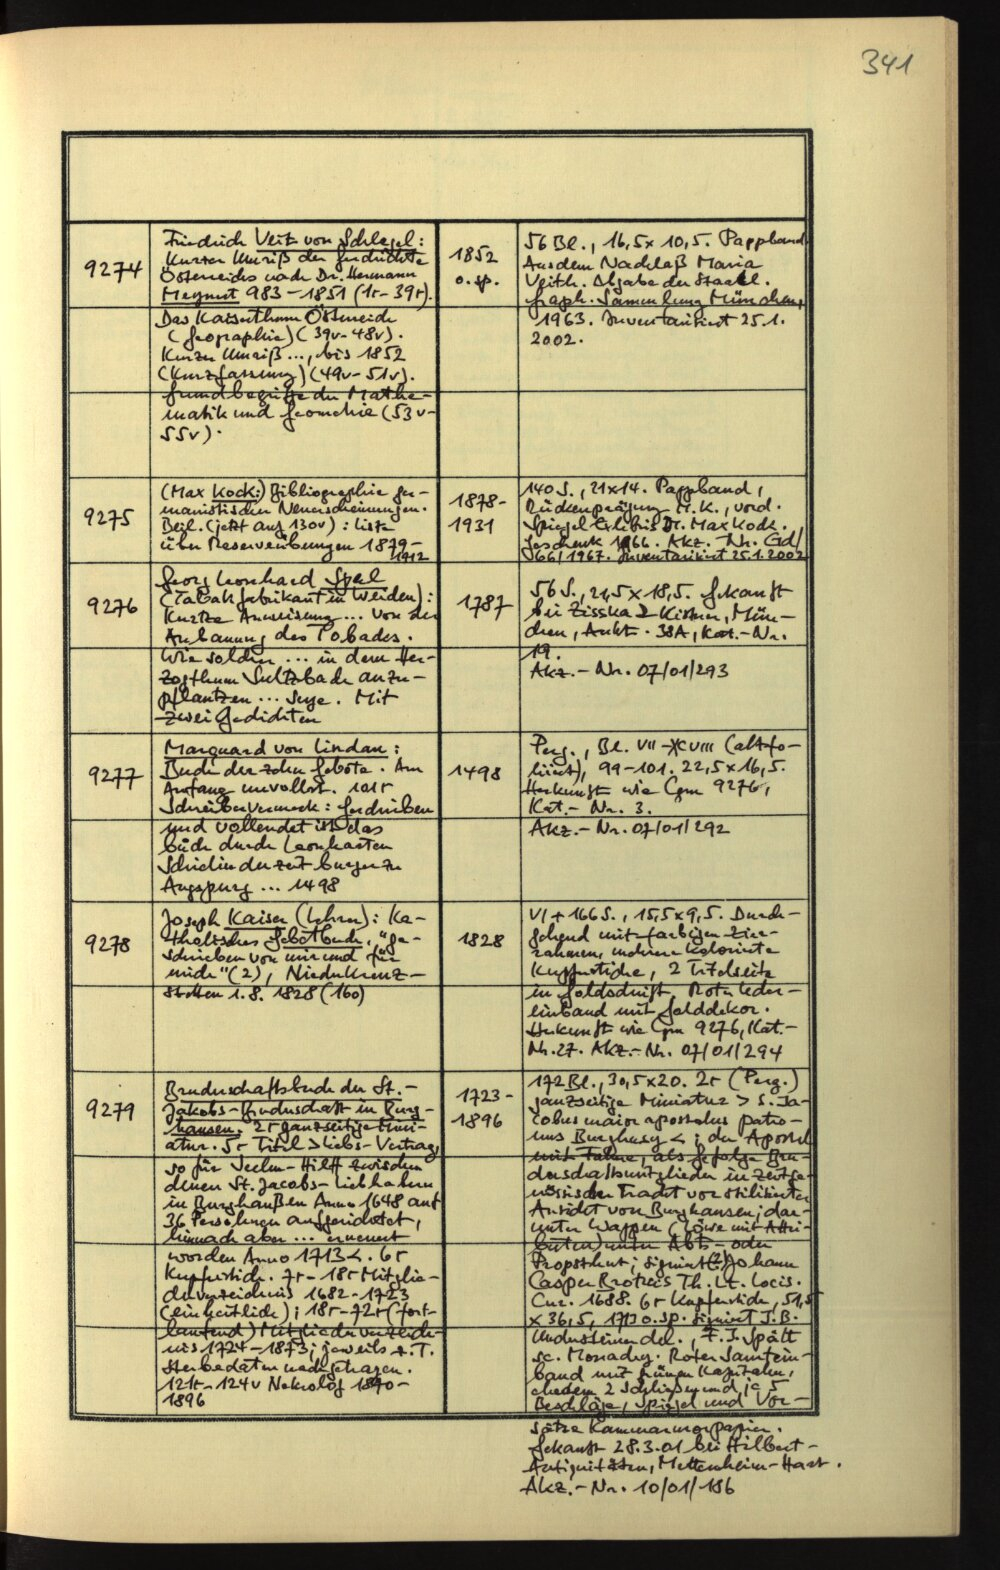 341
9274
Friedrich Veit von Schlegel:
Kurzer Umriß der Geschichte
Österreichs nach Dr. Hermann
Meynert 983-1851 (1r-39r).
Das Kaiserthum Österreich
(Geographie) (39v-48v).
Kurzer Umriß ..., bis 1852
(Kurzfassung) (49v-51v).
Grundbegriffe der Mathe-
matik und Geometrie (53v-
55v).
1852
o. sp.
56 Bl., 16,5 x 10,5. Pappband
Aus dem Nachlaß Maria
Veith. Abgabe der Staatl.
Graph. Sammlung München,
1963. Inventarisiert 25.1.
2002.
9275
(Max Kock:) Bibliographie ger-
manistischer Neuerscheinungen.
Beil. (jetzt aus 130v): Liste
über Reserveübungen 1879-
1912
1878-
1931
140 S., 21x14. Pappband,
Rückenprägung M.K., vord.
Spiegel Exlibris Dr. Max Kock.
Geschenk 1966. Akz.-Nr. Gd/
366/1967. Inventarisiert 25.1.2002
9276
Georg Leonhard Sperl
(Tabakfabrikant in Weiden):
Kurtze Anweisung ... von der
Anbauung des Tobacks.
Wie solcher ... in dem Her-
zogthum Sultzbach anzu-
pflantzen ... seye. Mit
zwei Gedichten
1787
56 S., 21,5 x 18,5. Gekauft
bei Zisska & Kistner, Mün-
chen, Aukt. 38A, Kat.-Nr.
19.
Akz.-Nr. 07/01/293
9277
Marquard von Lindau:
Buch der zehn Gebote. Am
Anfang unvollst. 101r
Schreibervermerk: Geschriben
und vollendet ist das
büch durch Leonharten
Schielin der zeit burger zu
Augspurg ... 1498
1498
Perg., Bl. VII-XCVIII (alt fo-
liiert), 99-101. 22,5 x 16,5.
Herkunft wie Cgm 9276,
Kat.-Nr. 3.
Akz.-Nr. 07/01/292
9278
Joseph Kaiser (Lehrer): Ka-
tholisches Gebetbuch, "ge-
schrieben von mir und für
mich" (2), Niederkreuz-
stetten 1.8. 1828 (160)
1828
VI + 166 S., 15,5 x 9,5. Durch-
gehend mit farbigen Zier-
rahmen, mehrere kolorierte
Kupferstiche, 2 Titelseite
in Goldschrift. Roter Leder-
einband mit Golddekor.
Herkunft wie Cgm 9276, Kat.-
Nr. 27. Akz.-Nr. 07/01/294
9279
Bruderschaftsbuch der St.-
Jakobs-Bruderschaft in Burg-
hausen. 2r ganzseitige Mini-
atur. 5r Titel >Liebs-Vertrag,
so für Seelen-Hilff zwischen
denen St. Jacobs-Liebhabern
in Burghaußen Anno 1648 auf
36 Persohnen aufgerichtet,
hernach aber ... erneuert
worden Anno 1713<. 6r
Kupferstich. 7r-18r Mitglie-
derverzeichnis 1682-1723
(einheitlich); 18r-72r (fort-
laufend) Mitgliederverzeich-
nis 1724-1873; jeweils z.T.
Sterbedaten nachgetragen.
121r-124v Nekrolog 1840-
1896
1723-
1896
172 Bl., 30,5x20. 2r (Perg.)
ganzseitige Miniatur > S. Ja-
cobus maior apostolus patro-
nus Burghusy <; der Apostel
mit Fahne, als Gefolge Bru-
derschaftsmitglieder in zeitge-
nössischer Tracht vor stilisierter
Ansicht von Burghausen; dar-
unter Wappen (Löwe mit Attri-
buten) unter Abts- oder
Propsthut; signiert (?) Johann
Casper Th. Lt. Locis.
Cur. 1688. 6r Kupferstich, 51,5
x 36,5, 1713 o. sp. signiert J.B.
Understeiner del., F.J. Spätt
sc. Monachy. Roter Samtein-
band mit grünen Kapitalen,
ehedem 2 Schließen und je 5
Beschläge, Spiegel und Vor-
sätze Kammarmorpapier.
Gekauft 28.3.01 bei Hilbert-
Antiquitäten, Mettenheim-Hart.
Akz.-Nr. 10/01/186